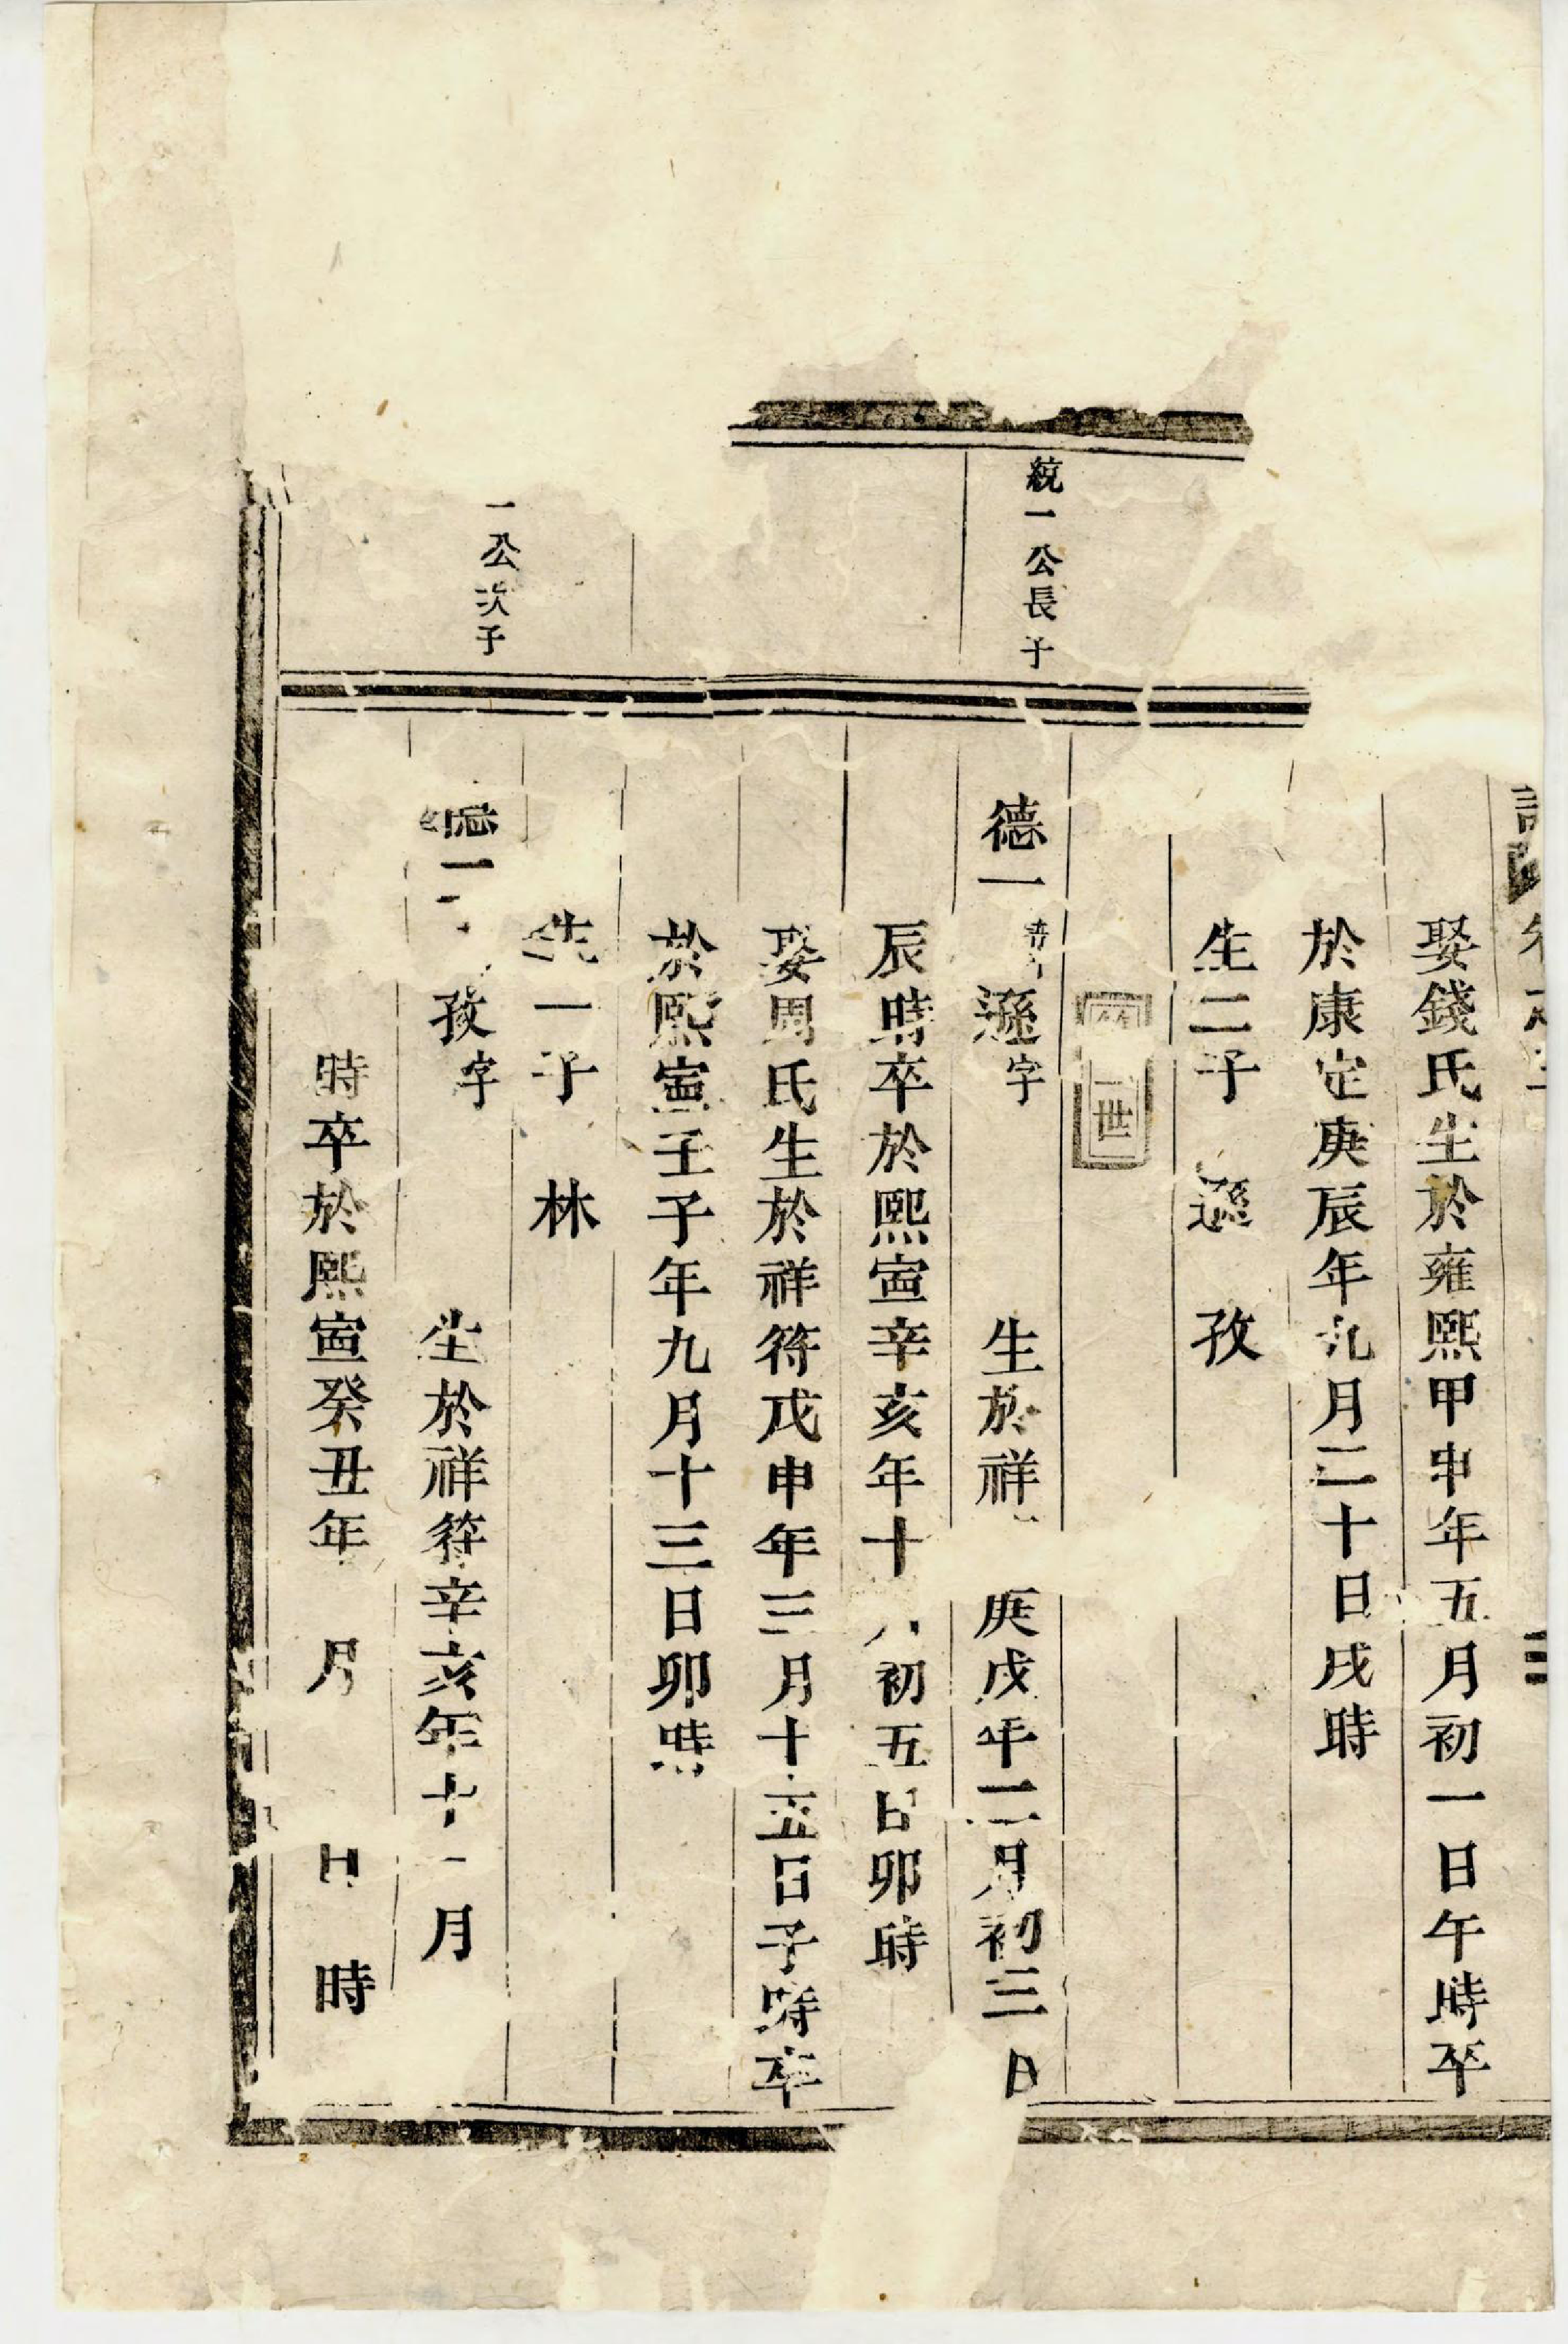 娶錢氏生於雍熙甲申年五月初一日午時卒
於康定庚辰年九月二十日戌時
生二子 遜 孜
世
統一公長子
德一 遜字 生於祥 庚戌年二月初三日
辰時卒於熙寧辛亥年十 初五日卯時
娶周氏生於祥符戊申年三月十五日子時卒
於熙寧壬子年九月十三日卯時
生一子 林
一公次子
德二 孜字 生於祥符辛亥年十一月
時卒於熙寧癸丑年 月 日 時